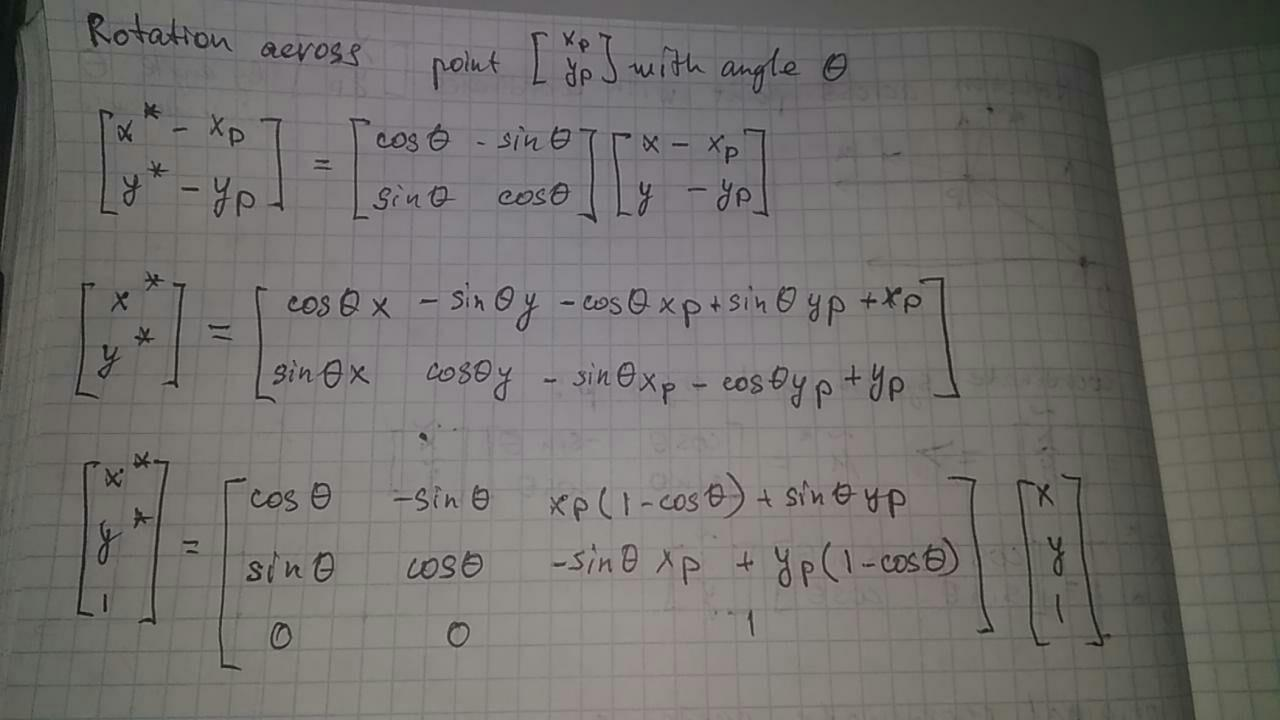 Rotation across point [ xp yp ] with angle θ
[ x* - xp ] = [ cosθ - sinθ ] [ x - xp ]
[ y* - yp ] [ sinθ cosθ ] [ y - yp ]
[ x* ] = [ cosθx - sinθy - cosθxp + sinθyp + xp ]
[ y* ] [ sinθx cosθy - sinθxp - cosθyp + yp ]
[ x* ] [ cosθ -sinθ xp(1-cosθ) + sinθyp ] [ x ]
[ y* ] = [ sinθ cosθ -sinθxp + yp(1-cosθ) ] [ y ]
[ 1 ] [ 0 0 1 ] [ 1 ]